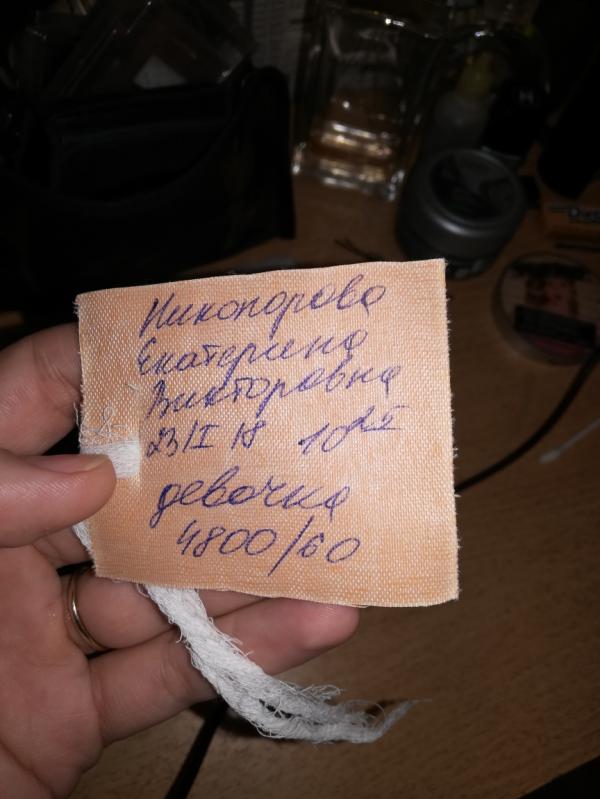 Никонорова
Екатерина
Викторовна
23/I 18 10
девочка
4800/60